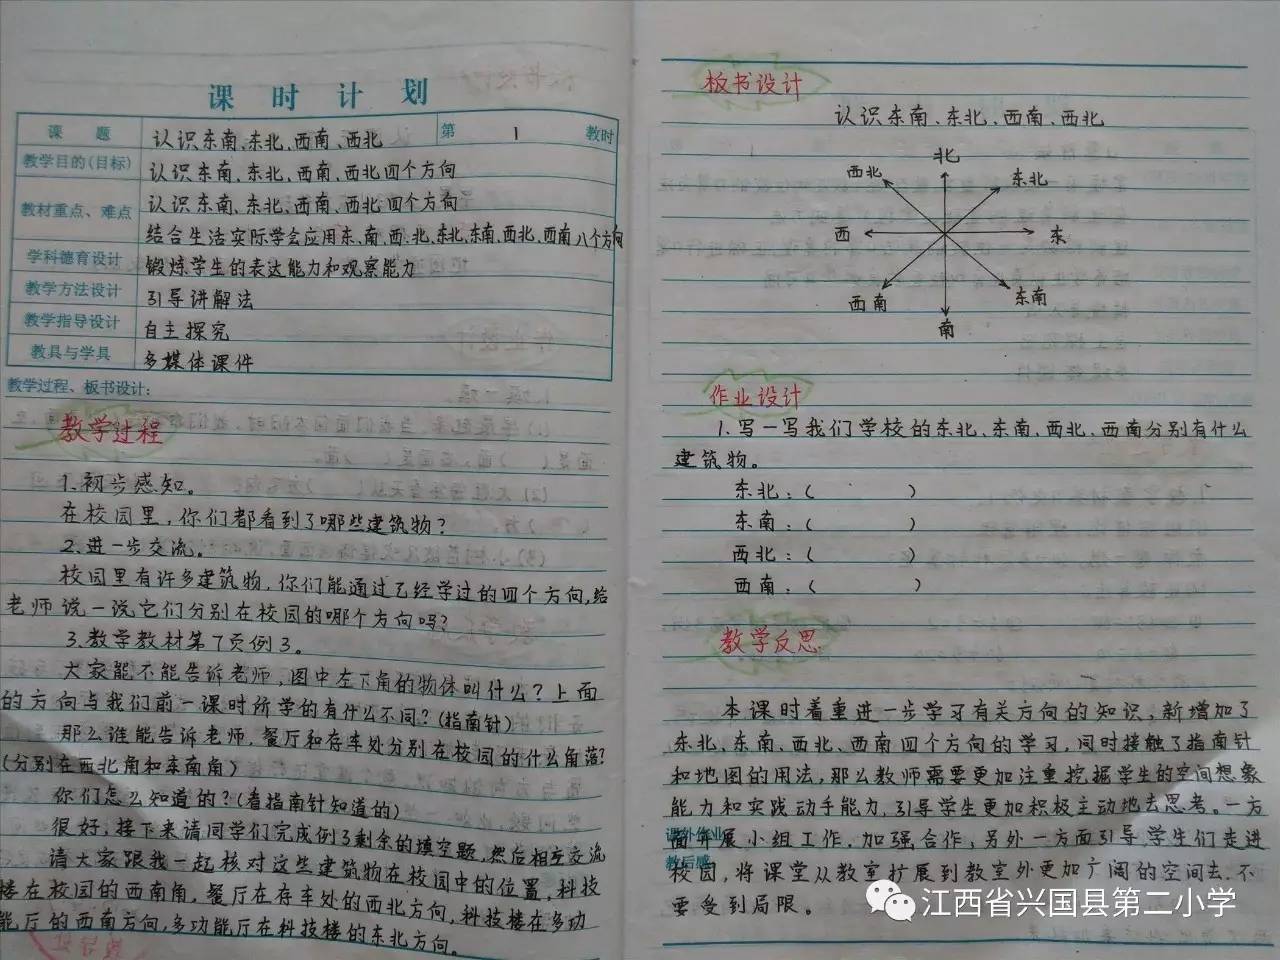 课 时 计 划
课 题 认识东南、东北、西南、西北 第 1 教时
教学目的(目标) 认识东南、东北、西南、西北四个方向
教材重点、难点 认识东南、东北、西南、西北四个方向
结合生活实际学会应用东、南、西、北、东北、东南、西北、西南八个方向
学科德育设计 锻炼学生的表达能力和观察能力
教学方法设计 引导讲解法
教学指导设计 自主探究
教具与学具 多媒体课件
教学过程、板书设计:
教学过程
1.初步感知。
在校园里,你们都看到了哪些建筑物?
2.进一步交流。
校园里有许多建筑物,你们能通过已经学过的四个方向,给
老师说一说它们分别在校园的哪个方向吗?
3.教学教材第7页例3。
大家能不能告诉老师,图中左下角的物体叫什么?上面
的方向与我们前一课时所学的有什么不同?(指南针)
那么谁能告诉老师,餐厅和存车处分别在校园的什么角落?
(分别在西北角和东南角)
你们怎么知道的?(看指南针知道的)
很好,接下来请同学们完成例3剩余的填空题,然后相互交流
请大家跟我一起核对这些建筑物在校园中的位置。科技
楼在校园的西南角,餐厅在存车处的西北方向,科技楼在多功
能厅的西南方向,多功能厅在科技楼的东北方向。
板书设计
认识东南、东北、西南、西北
北
西北 东北
西 东
西南 东南
南
作业设计
1.写一写我们学校的东北、东南、西北、西南分别有什么
建筑物。
东北:( )
东南:( )
西北:( )
西南:( )
教学反思
本课时着重进一步学习有关方向的知识,新增加了
东北、东南、西北、西南四个方向的学习,同时接触了指南针
和地图的用法,那么教师需要更加注重挖掘学生的空间想象
能力和实践动手能力,引导学生更加积极主动地去思考。一方
课外作业
面开展小组工作,加强合作,另外一方面引导学生们走进
教后感
校园,将课堂从教室扩展到教室外更加广阔的空间去,不
要受到局限。
江西省兴国县第二小学